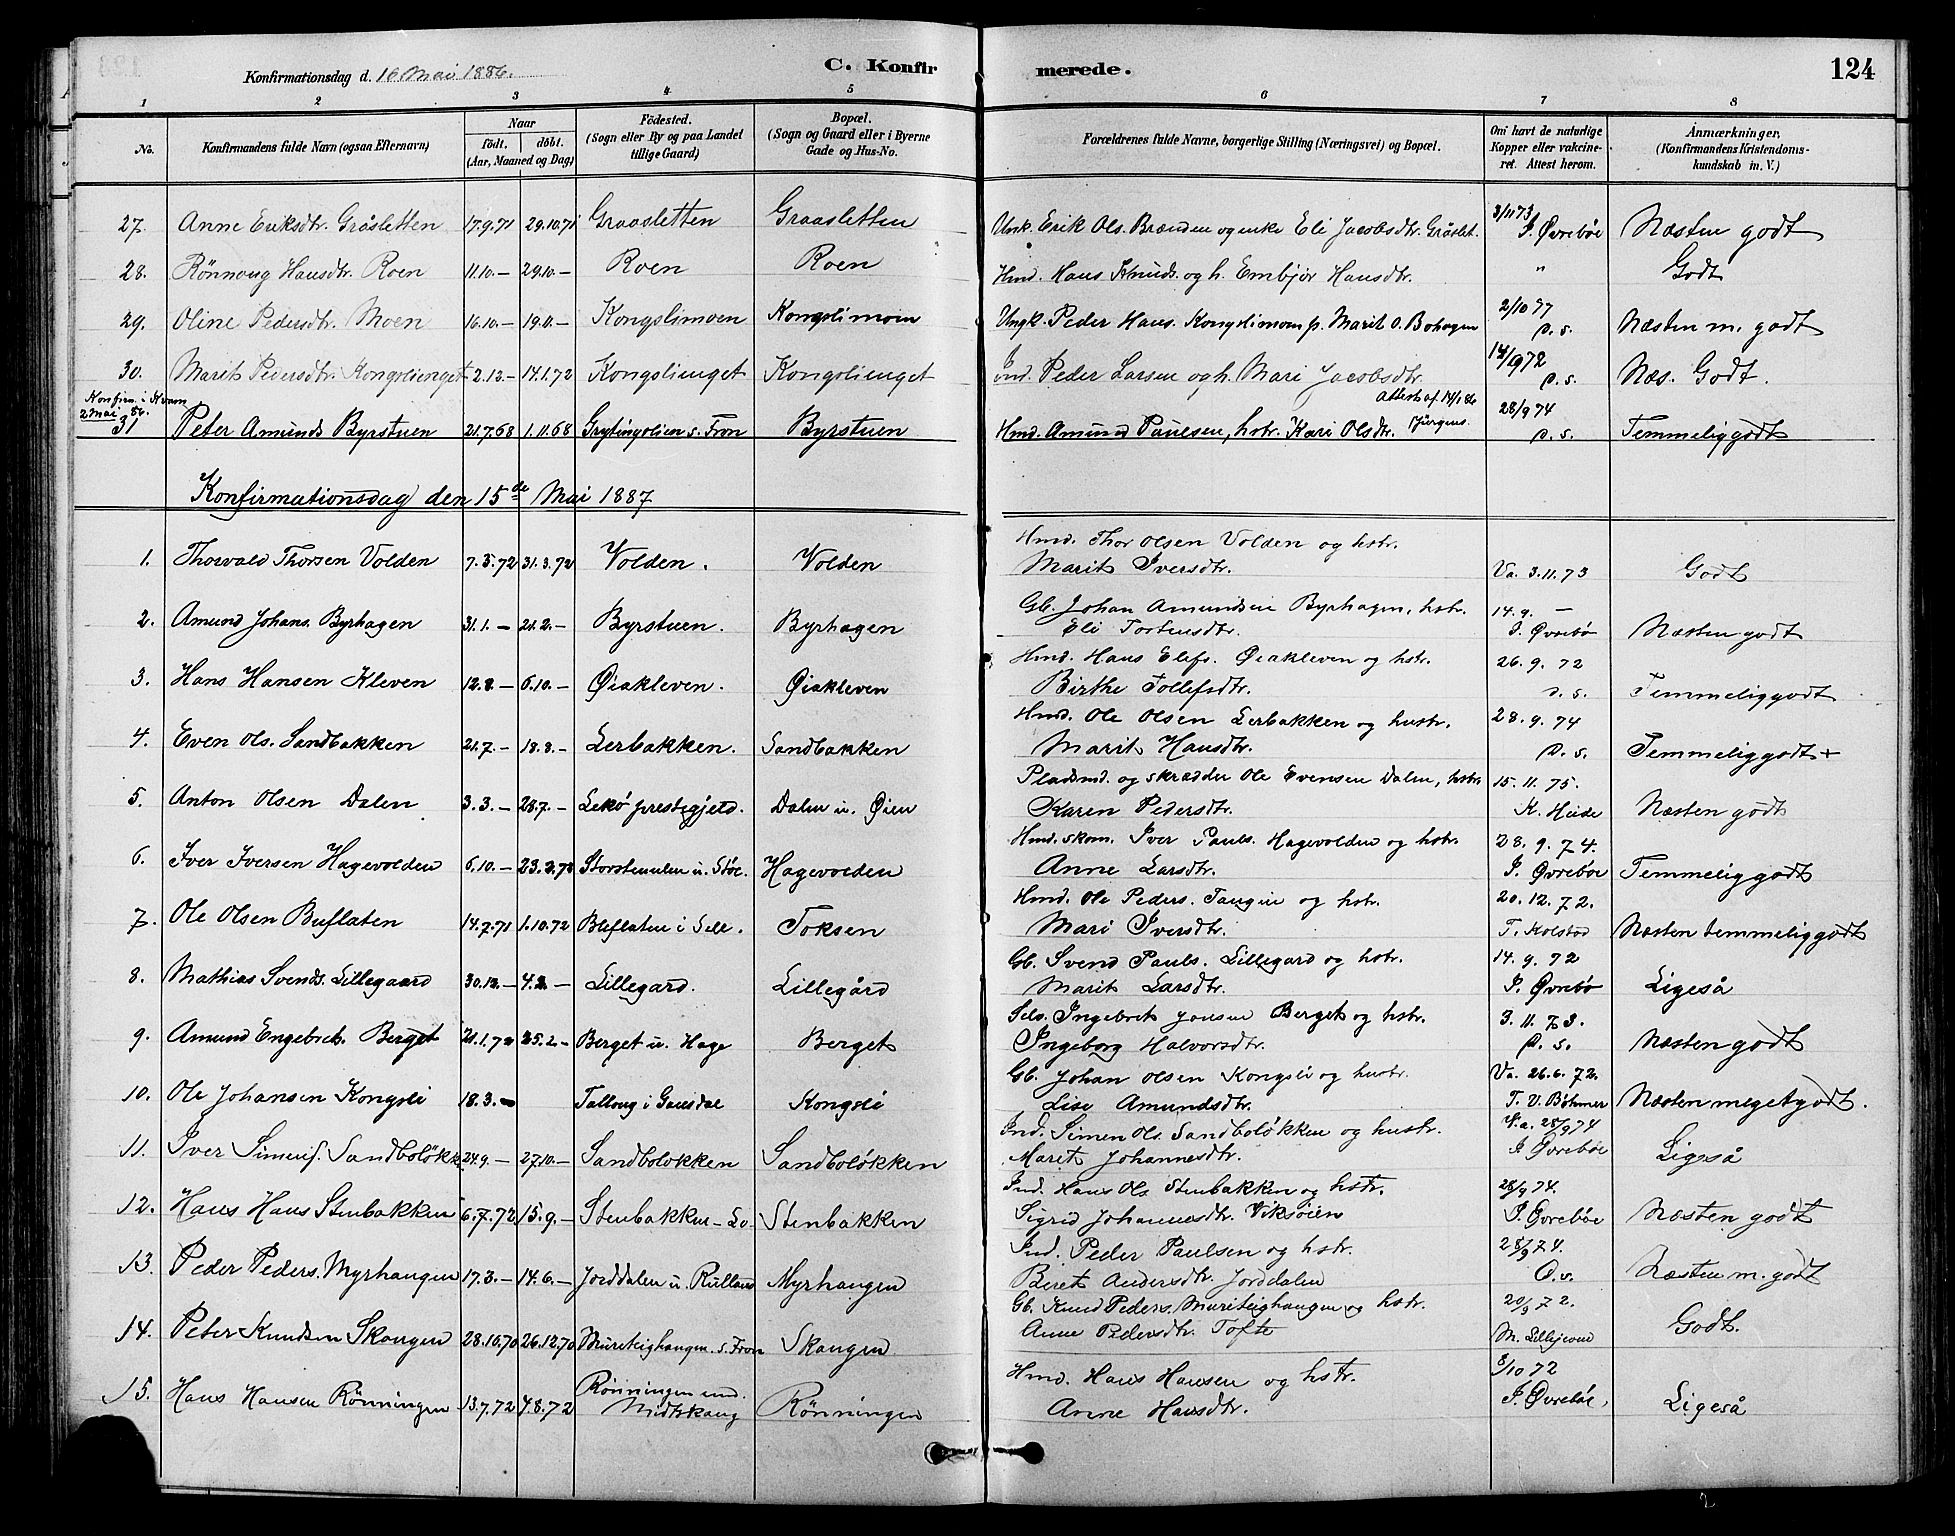 Konfirmationsdag d. 16 Mai 1886.
C. Konfirmerede.
124
1 2 3 4 5 6 7 8
No.
Konfirmandens fulde Navn (ogsaa Efternavn)
Naar
födt. döbt.
(Aar, Maaned og Dag)
Födested.
(Sogn eller By og paa Landet
tillige Gaard)
Bopæl.
(Sogn og Gaard eller i Byerne
Gade og Hus-No.
Forældrenes fulde Navne, borgerlige Stilling (Næringsvei) og Bopæl.
Om havt de naturlige
Kopper eller vakcine-
ret. Attest herom.
Anmærkninger,
(Konfirmandens Kristendoms-
kundskab m. V.)
27. Anne Eriksdtr. Gråsletten 17.9.71 29.10.71 Graasletten Graasletten Unk. Erik Ols. Brænden og enke Eli Jacobsdtr. Gråslet. 3/11 73 I. Øvrebøe Næsten godt
28. Rønnoug Hansdtr. Roen 11.10.— 29.10.— Roen Roen Hmd. Hans Knuds. og h. Embjør Hansdtr. " Godt
29. Oline Pedersdtr. Moen 16.10.— 19.11.— Kongslimoen Kongslimoin Ungk. Peder Hans. Kongslimoen p. Marit O. Bohagen 2/10 77 d. s. Næsten m. godt
30. Marit Pedersdtr. Kongslienget 2.12.— 14.1.72 Kongslienget Kongslienget Ind. Peder Larsen og h. Mari Jacobsdtr. 14/9 72 d. s. Næs. Godt.
Konfirm. i Kvam
2 Mai 86.
Attest af 14/1 86
31 Peter Amunds Byrstuen 21.7.68 1.11.68 Grytingslien s. Fron Byrstuen Hmd. Amund Paulsen, hstr. Kari Olsdtr. Jürgens. 28/9 74 d. s. Temmelig godt
Konfirmationsdag den 15de Mai 1887
1. Thorvald Thorsen Volden 7.3.72 31.3.72 Volden. Volden Hmd. Thor Olsen Volden og hstr.
Marit Iversdtr. Va. 3.11.73 Godt
2. Amund Johans. Byrhagen 31.1.— 21.2.— Byrstuen. Byrhagen Gb. Johan Amundsen Byrhagen, hstr.
Eli Tostensdtr. 14.9.— I. Øvrebø Næsten godt
3. Hans Hansen Kleven 12.8.— 6.10.— Øiakleven. Øiakleven Hmd. Hans Elefs. Øiakleven og hstr.
Birthe Tollefsdtr. 26.9.72 d. s. Temmelig godt
4. Even Ols. Sandbakken 21.7.— 18.8.— Lerbakken. Sandbakken Hmd. Ole Olsen Lerbakken og hustr.
Marit Hansdtr. 28.9.74 d. s. Temmelig godt +
5. Anton Olsen Dalen 3.3.— 28.7.— Lekø prestegjeld. Dalen u. Øien Pladsmd. og skrædder Ole Evensen Dalen, hstr.
Karen Pedersdtr. 15.11.75. K. Heide Næsten godt
6. Iver Iversen Hagevolden 6.10.— 23.2.73 Storstenulen u. Hagevolden Hmd. skom. Iver Pauls. Hagevolden og hstr.
Anne Larsdtr. 28.9.74. I. Øvrebøe Temmelig godt
7. Ole Olsen Buflaten 14.7.71 1.10.72 Bleflaten i Sell. Toksen Hmd. Ole Peders. Tangen og hstr.
Mari Iversdtr. 20.12.72. T. Kolstad Næsten temmelig godt
8. Mathias Svends. Lillegaard 30.12.— 4.2.— Lillegard. Lillegård Gb. Svend Pauls. Lillegard og hstr.
Marit Larsdtr. 14.9.72 I. Øvrebø Ligeså
9. Amund Engebrets. Berget 21.1.72 25.2.— Berget u. Hage Berget Sels. Ingebret Jonsen Berget og hstr.
Ingeborg Halvorsdtr. 3.11.73. d. s. Næsten godt
10. Ole Johansen Kongsli 18.3.— Tallaug i Gausdal Kongsli Gb. Johan Olsen Kongsli og hustr.
Lise Amundsdtr. Va. 26.6.72. T. V. Bøhmer Næsten meget godt.
11. Iver Simens. Sandboløkk. 24.9.— 27.10.— Sandboløkken Sandboløkken Ind. Simen Ols. Sandboløkken og hustr.
Maret Johannesdtr. Va. 28/9 74 I. Øvrebøe Ligeså
12. Hans Hans Stenbakken 6.7.72 15.9.— Stenbakken — Lo. Stenbakken Ind. Hans Ols Stenbakken og hstr.
Sigrid Johannesdtr. Viksøien 28/9 74. I. Øvrebøe Næsten godt
13. Peder Peders. Myrhaugen 17.3.— 14.6.— Jorddalen u. Rulland Myrhaugen Ind. Peder Paulsen og hstr.
Beret Andersdtr. Jorddalen 28/9 74. d. s. Næsten m. godt
14. Peter Knudsen Skaugen 28.10.70 26.12.70 Mureteighaugen s. Fron Skaugen Gb. Knud Peders. Mureteighaugen og hstr.
Anne Pedersdtr. Tofte 20/9 72. Godt.
15. Hans Hansen Rønningen 13.7.72 4.8.72 Rønningen und. Midtskaug Rønningen Hmd. Hans Hansen og hstr.
Anne Hansdtr. 8/10 72 I. Øvrebøe, Ligeså